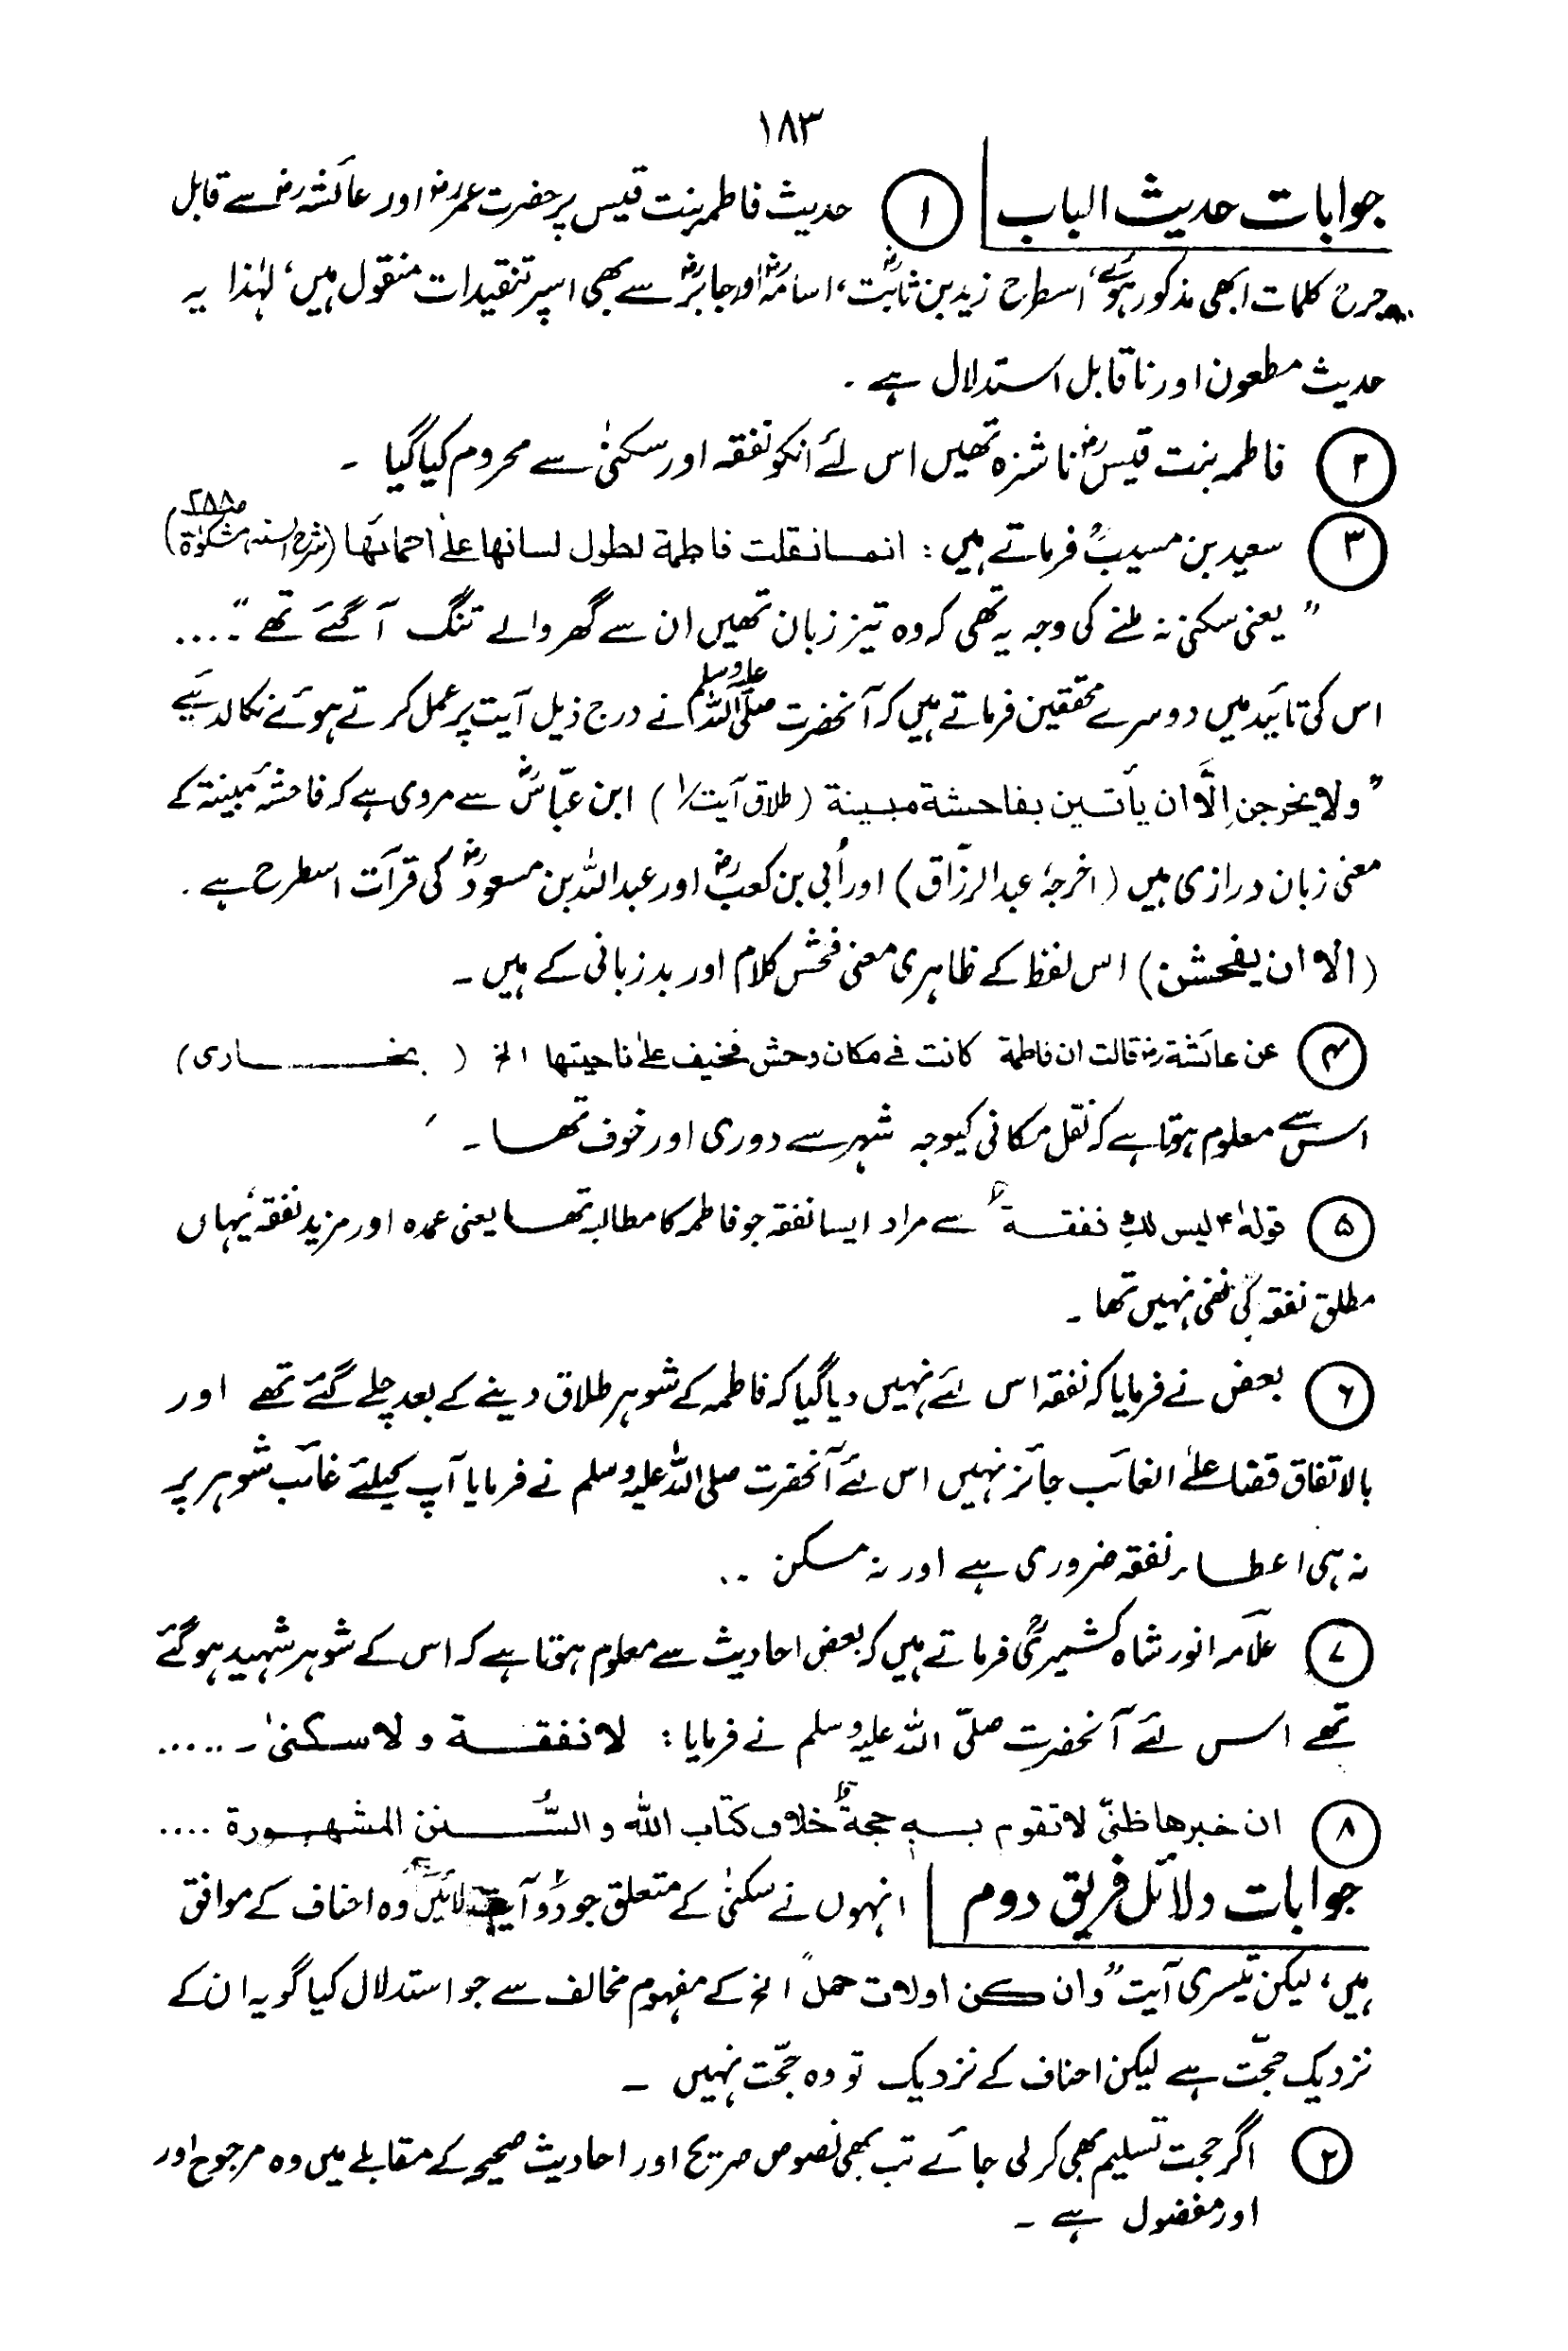 ١٨٣
جوابات حدیث الباب ① حدیث فاطمہ بنت قیس پر حضرت عمررض اور عائشہ رض سے قابل
جرح کلمات ابھی مذکور ہوئے، اسطرح زید بن ثابتؓ، اسامہؓ اور جابرؓ سے بھی اسپر تنقیدات منقول ہیں، لہٰذا یہ
حدیث مطعون اور ناقابل استدلال ہے ۔
② فاطمہ بنت قیسؓ ناشزہ تھیں اس لئے انکو نفقہ اور سکنیٰ سے محروم کیا گیا ۔
③ سعید بن مسیبؒ فرماتے ہیں : انما نقلت فاطمة لطول لسانها علیٰ احمائها (شرح السنہ، مشکوٰۃ ص۲۸۸)
” یعنی سکنیٰ نہ ملنے کی وجہ یہ تھی کہ وہ تیز زبان تھیں ان سے گھر والے تنگ آ گئے تھے “ ۔....
اس کی تائید میں دوسرے محققین فرماتے ہیں کہ آنحضرت صلی اللہ علیہ وسلم نے درج ذیل آیت پر عمل کرتے ہوئے نکالدیئے
” ولا یخرجن اِلَّا ان یأتین بفاحشة مبینة ( طلاق آیت ۱؎ ) ابن عبّاسؓ سے مروی ہے کہ فاحشہ مبینۃ کے
معنی زبان درازی ہیں ( اخرجہٗ عبد الرزّاق ) اور اُبی بن کعبؓ اور عبد اللہ بن مسعودؓ کی قرآت اسطرح ہے .
( الا ان یفحشن ) اس لفظ کے ظاہری معنی فحش کلام اور بدزبانی کے ہیں ۔
④ عن عائشة رض قالت ان فاطمة کانت فی مکان وحش فخیف علیٰ ناحیتها الخ ( بخاری )
اس سے معلوم ہوتا ہے کہ نقل مکانی کیوجہ شہر سے دوری اور خوف تھا ۔
⑤ قولہٗ ؑ لیس لكِ نفقة سے مراد ایسا نفقہ جو فاطمہ کا مطالبہ تھا یعنی عمدہ اور مزید نفقہ، یہاں
مطلق نفقہ کی نفی نہیں تھا ۔
⑥ بعض نے فرمایا کہ نفقہ اس لئے نہیں دیا گیا کہ فاطمہ کے شوہر طلاق دینے کے بعد چلے گئے تھے اور
بالاتفاق قضا علیٰ الغائب جائز نہیں اس لئے آنحضرت صلی اللہ علیہ وسلم نے فرمایا آپ کیلئے غائب شوہر پر
نہ ہی اعطاء نفقہ ضروری ہے اور نہ مسکن ..
⑦ علّامہ انور شاہ کشمیریؒ فرماتے ہیں کہ بعض احادیث سے معلوم ہوتا ہے کہ اس کے شوہر شہید ہو گئے
تھے اس لئے آنحضرت صلّی اللہ علیہ وسلم نے فرمایا : لا نفقة و لا سکنیٰ ۔.....
⑧ ان خبرها ظنیّ لا تقوم بہٖ حجةٌ خلاف کتاب اللہ و السُّنن المشهورة ....
جوابات دلائل فریق دوم انہوں نے سکنیٰ کے متعلق جو دُو آیت لائیں وہ احناف کے موافق
ہیں، لیکن تیسری آیت ” وان کن اولات حمل “ الخ کے مفہوم مخالف سے جو استدلال کیا گو یہ ان کے
نزدیک حجّت ہے لیکن احناف کے نزدیک تو وہ حجّت نہیں ۔
② اگر حجت تسلیم بھی کر لی جائے تب بھی نصوص صریح اور احادیث صحیحہ کے مقابلے میں وہ مرجوح اور
اور مفضول ہے ۔